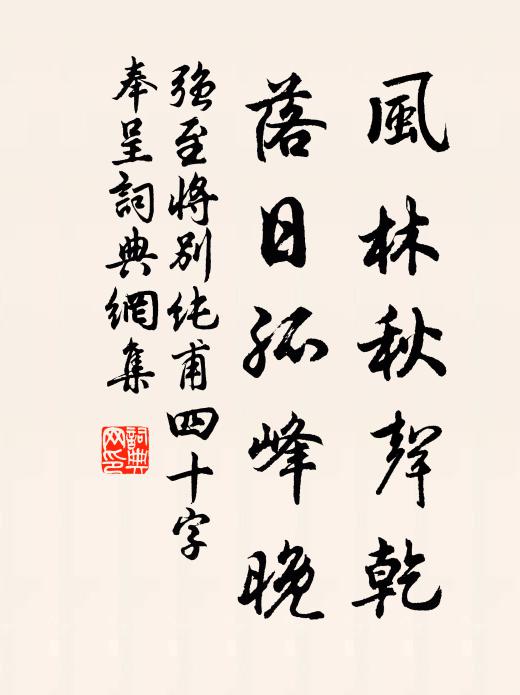 風林秋聲乾
落日孤峰晚
强至將別純甫四十字
奉呈詞典網集
詞典网印